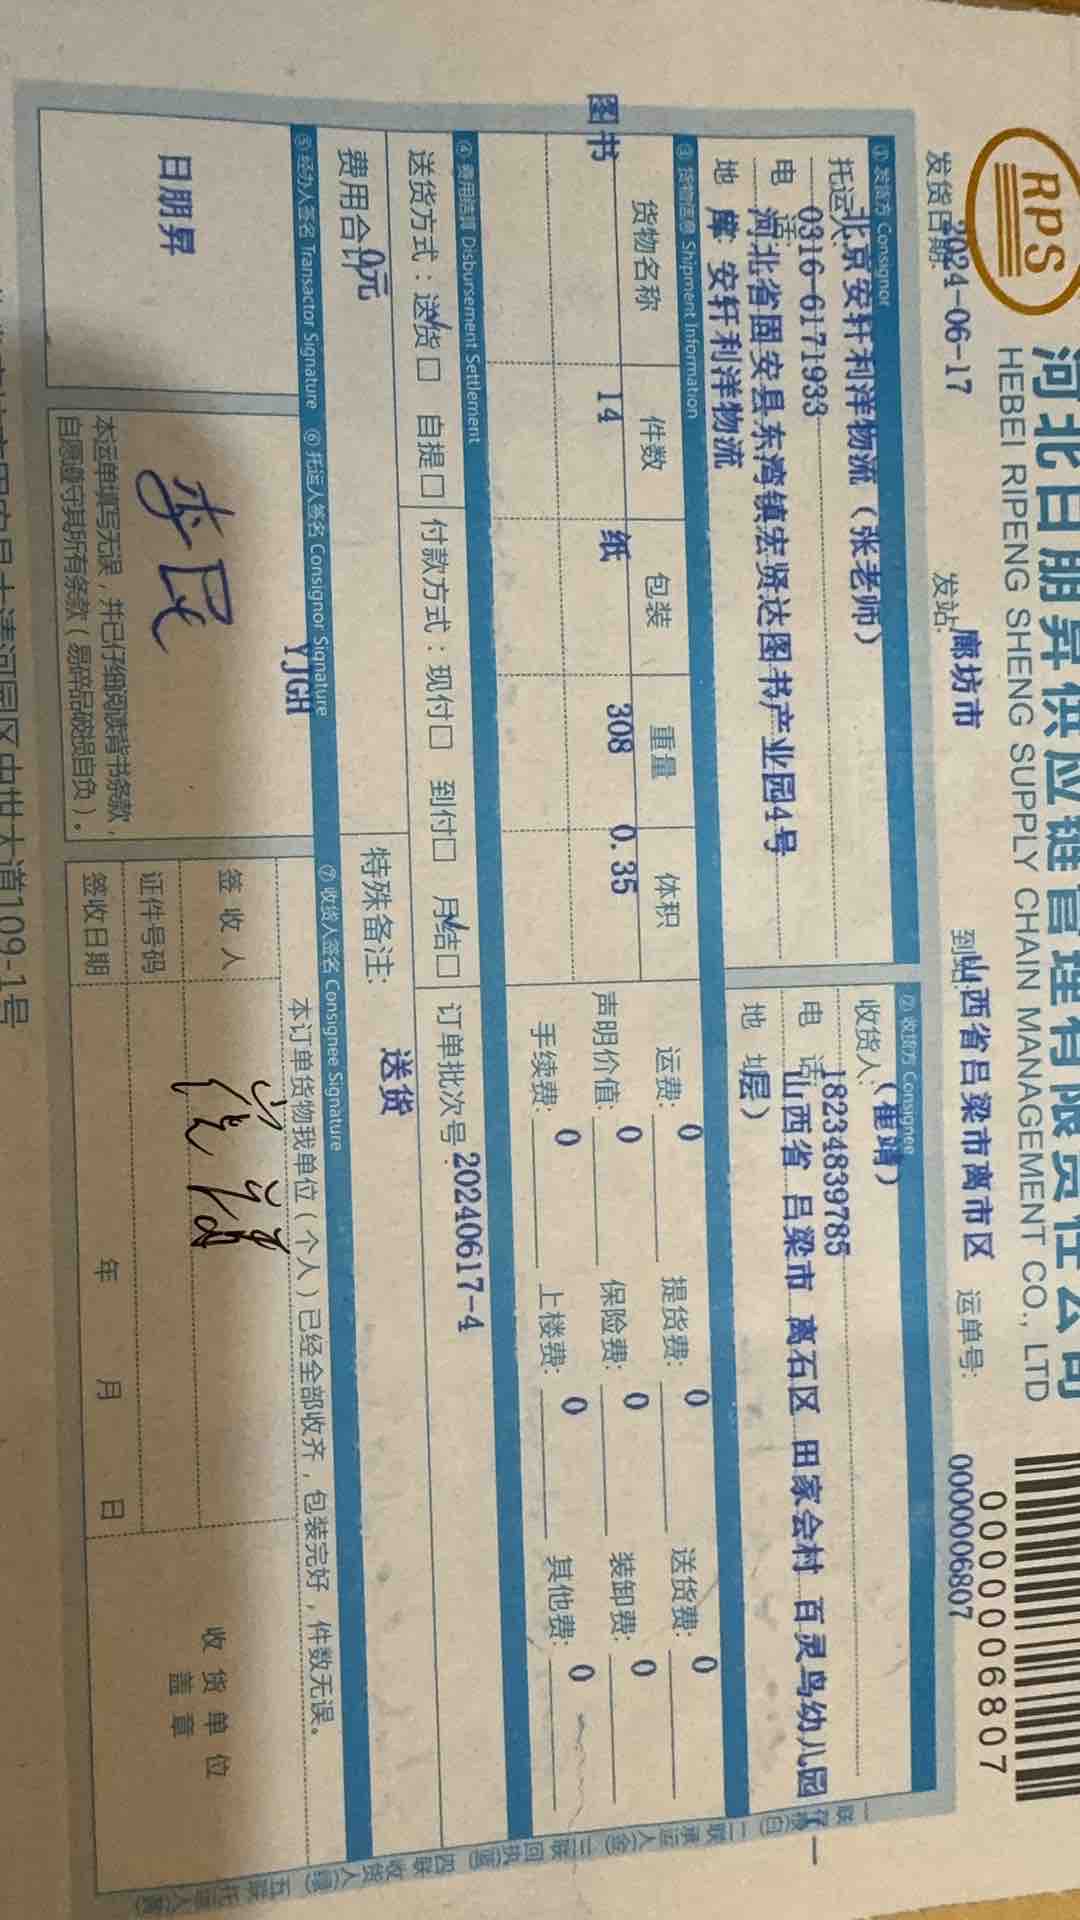 RPS
河北日朋昇供应链管理有限责任公司
HEBEI RIPENG SHENG SUPPLY CHAIN MANAGEMENT CO., LTD
0000006807
发货日期: 2024-06-17 发站: 廊坊市 到站: 山西省吕梁市离市区 运单号: 0000006807
① 发货方 Consignor
托运人: 北京安轩利洋物流（张老师）
电 话: 0316-6171933
地 河北省固安县东湾镇宏贤达图书产业园4号
库 安轩利洋物流
② 收货方 Consignee
收货人: （崔靖）
电 话: 18234839785
地 址: 山西省 吕梁市 离石区 田家会村 百灵鸟幼儿园（一
层）
③ 货物信息 Shipment Information
货物名称 件数 包装 重量 体积
图书 14 纸 308 0.35
运费: 0 提货费: 0 送货费: 0
声明价值: 0 保险费: 0 装卸费: 0
手续费: 0 上楼费: 0 其他费: 0
④ 费用结算 Disbursement Settlement
送货方式：送货√□ 自提□ 付款方式：现付□ 到付□ 月结√□ 订单批次号: 20240617-4
费用合计 0元 特殊备注: 送货
⑤ 经办人签名 Transactor Signature ⑥ 托运人签名 Consignor Signature ⑦ 收货人签名 Consignee Signature
日朋昇
YJGH
李民
本运单填写无误，并已仔细阅读背书条款，
自愿遵守其所有条款（易碎品破损自负）。
本订单货物我单位（个人）已经全部收齐，包装完好，件数无误。
签收人
证件号码
签收日期 年 月 日
收货单位
盖章